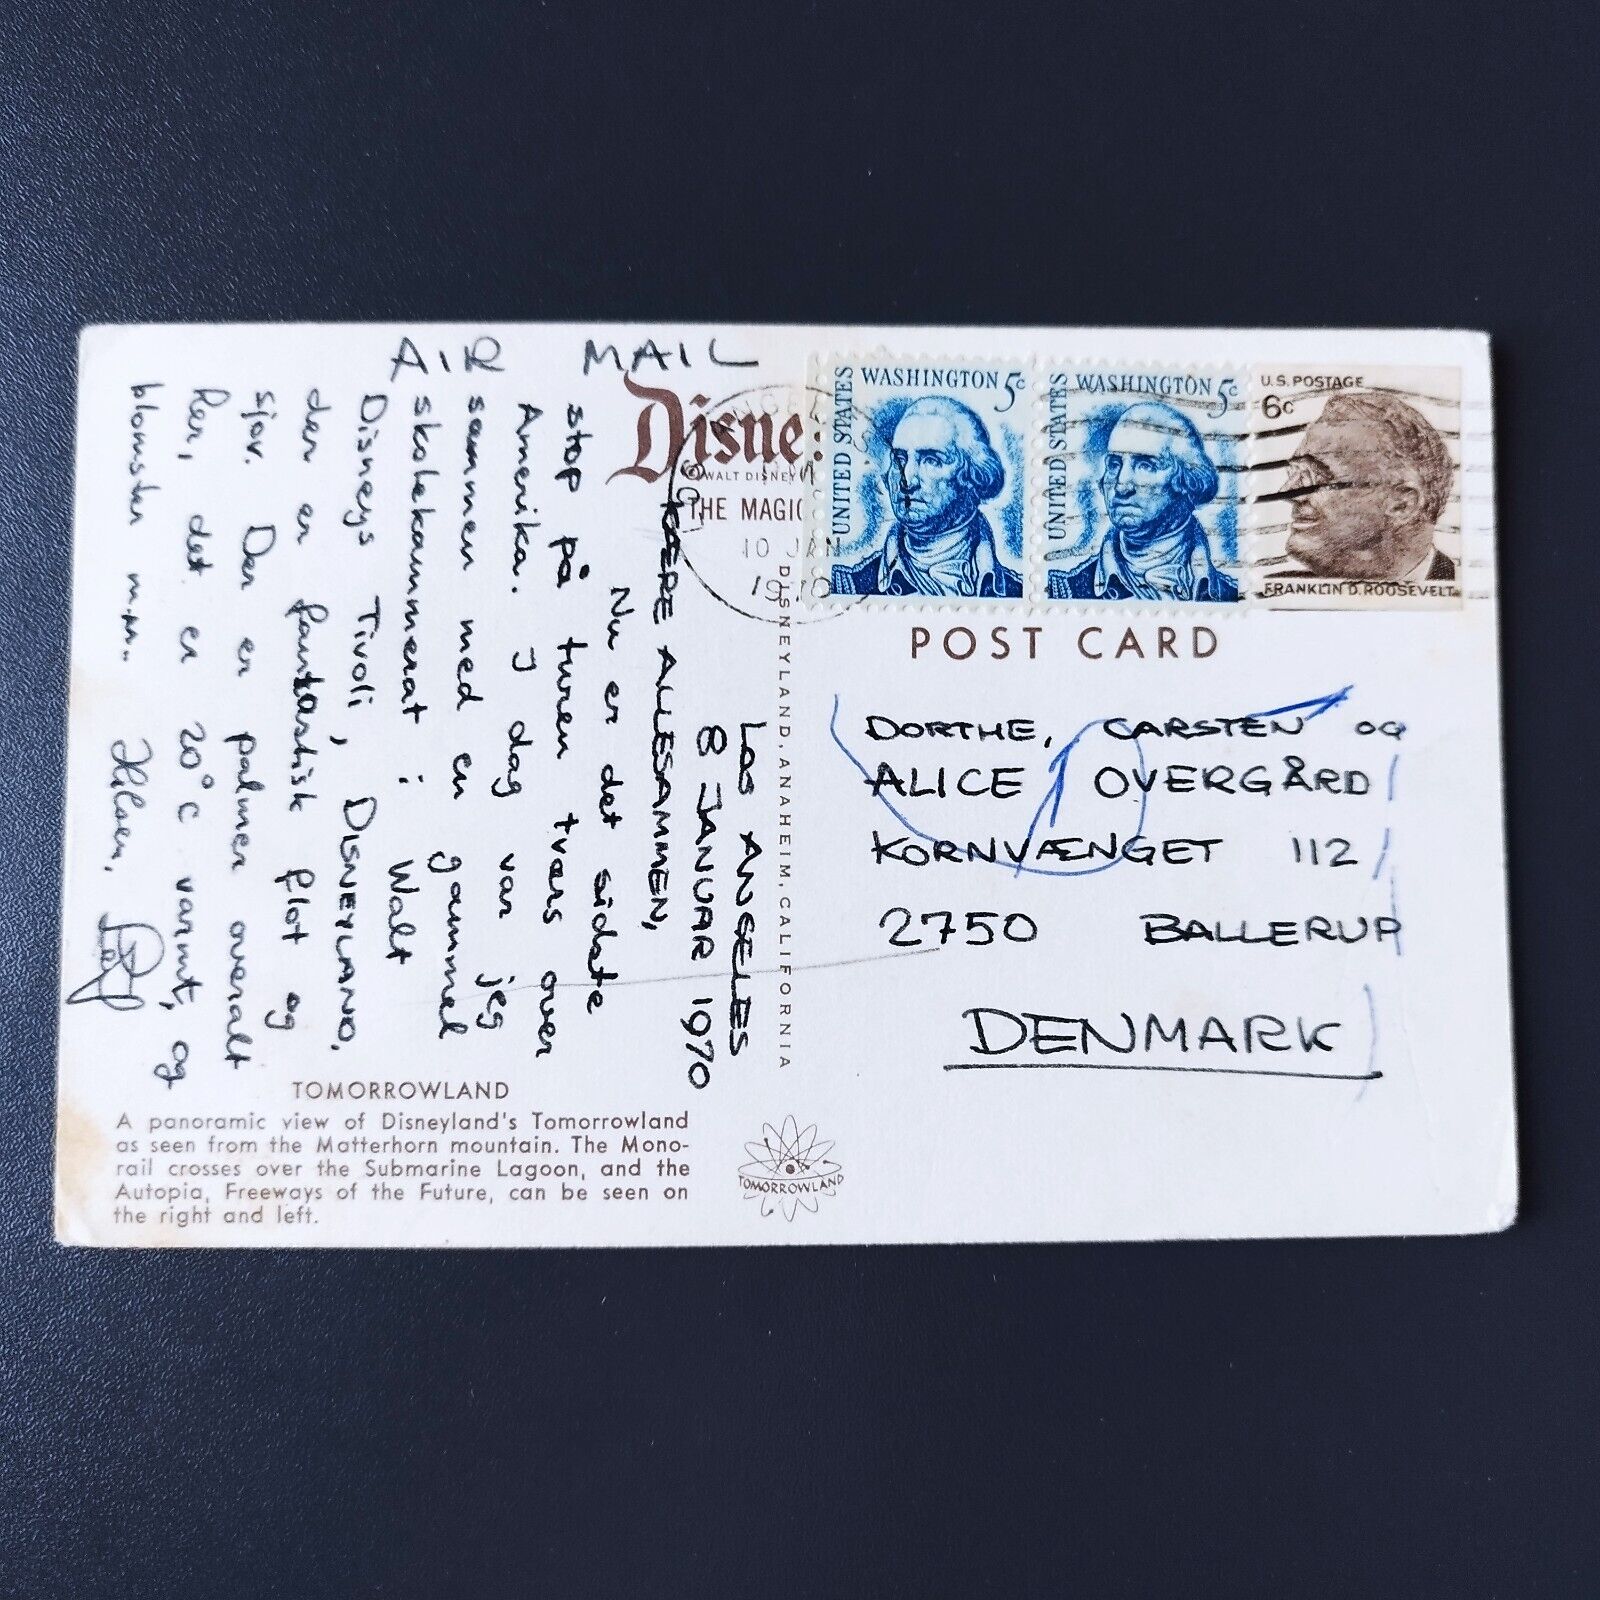 AIR MAIL
Disne
© WALT DISNEY
THE MAGIC
10 JAN
1970
UNITED STATES
WASHINGTON 5c
UNITED STATES
WASHINGTON 5c
U.S. POSTAGE
6c
FRANKLIN D. ROOSEVELT
POST CARD
LOS ANGELES
8 JANUAR 1970
KÆRE ALLESAMMEN,
Nu er det sidste
stop på turen tværs over
Amerika. I dag var jeg
sammen med en gammel
skolekammerat i Walt
Disneys Tivoli, DISNEYLAND.
der er fantastisk flot og
sjov. Der er palmer overalt
her, det er 20° C varmt, og
blomster m.m. Hilsen,
DISNEYLAND, ANAHEIM, CALIFORNIA
DORTHE, CARSTEN OG
ALICE OVERGÅRD
KORNVÆNGET 112
2750 BALLERUP
DENMARK
TOMORROWLAND
A panoramic view of Disneyland's Tomorrowland
as seen from the Matterhorn mountain. The Mono-
rail crosses over the Submarine Lagoon, and the
Autopia, Freeways of the Future, can be seen on
the right and left.
TOMORROWLAND